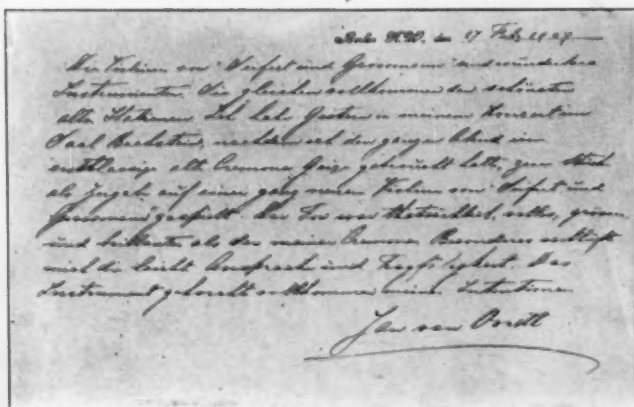 Berlin N.W. den 17 Feb. 1909
Die Violinen von "Seifert und Grossmann" sind wunderbare
Instrumente. Sie gleichen vollkommen den schönsten
alten Italienern. Ich habe gestern in meinem Konzert im
Saal Bechstein, nachdem ich den ganzen Abend ein
erstklassige alte Cremona Geige gespielt hatte, zum
als Zugabe auf einer ganz neuen Violine von "Seifert und
Grossmann" gespielt. Der Ton war thatsächlich voller, grösser
und brillanter als der meiner Cremona. Besonders verblüfft
mich die leichte Ansprache und Tragfähigkeit. Das
Instrument gehorcht vollkommen meinen Intentionen
Jan van Oordt